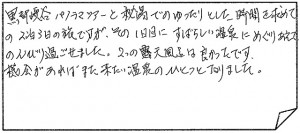 黒部峡谷パノラマツアーと秘湯でのゆったりとした時間を求めて
の2泊3日の旅ですが、その1日目にすばらしい温泉にめぐりあえて
のんびり過ごせました。2つの露天風呂は良かったです。
機会があればまた来たい温泉のひとつとなりました。